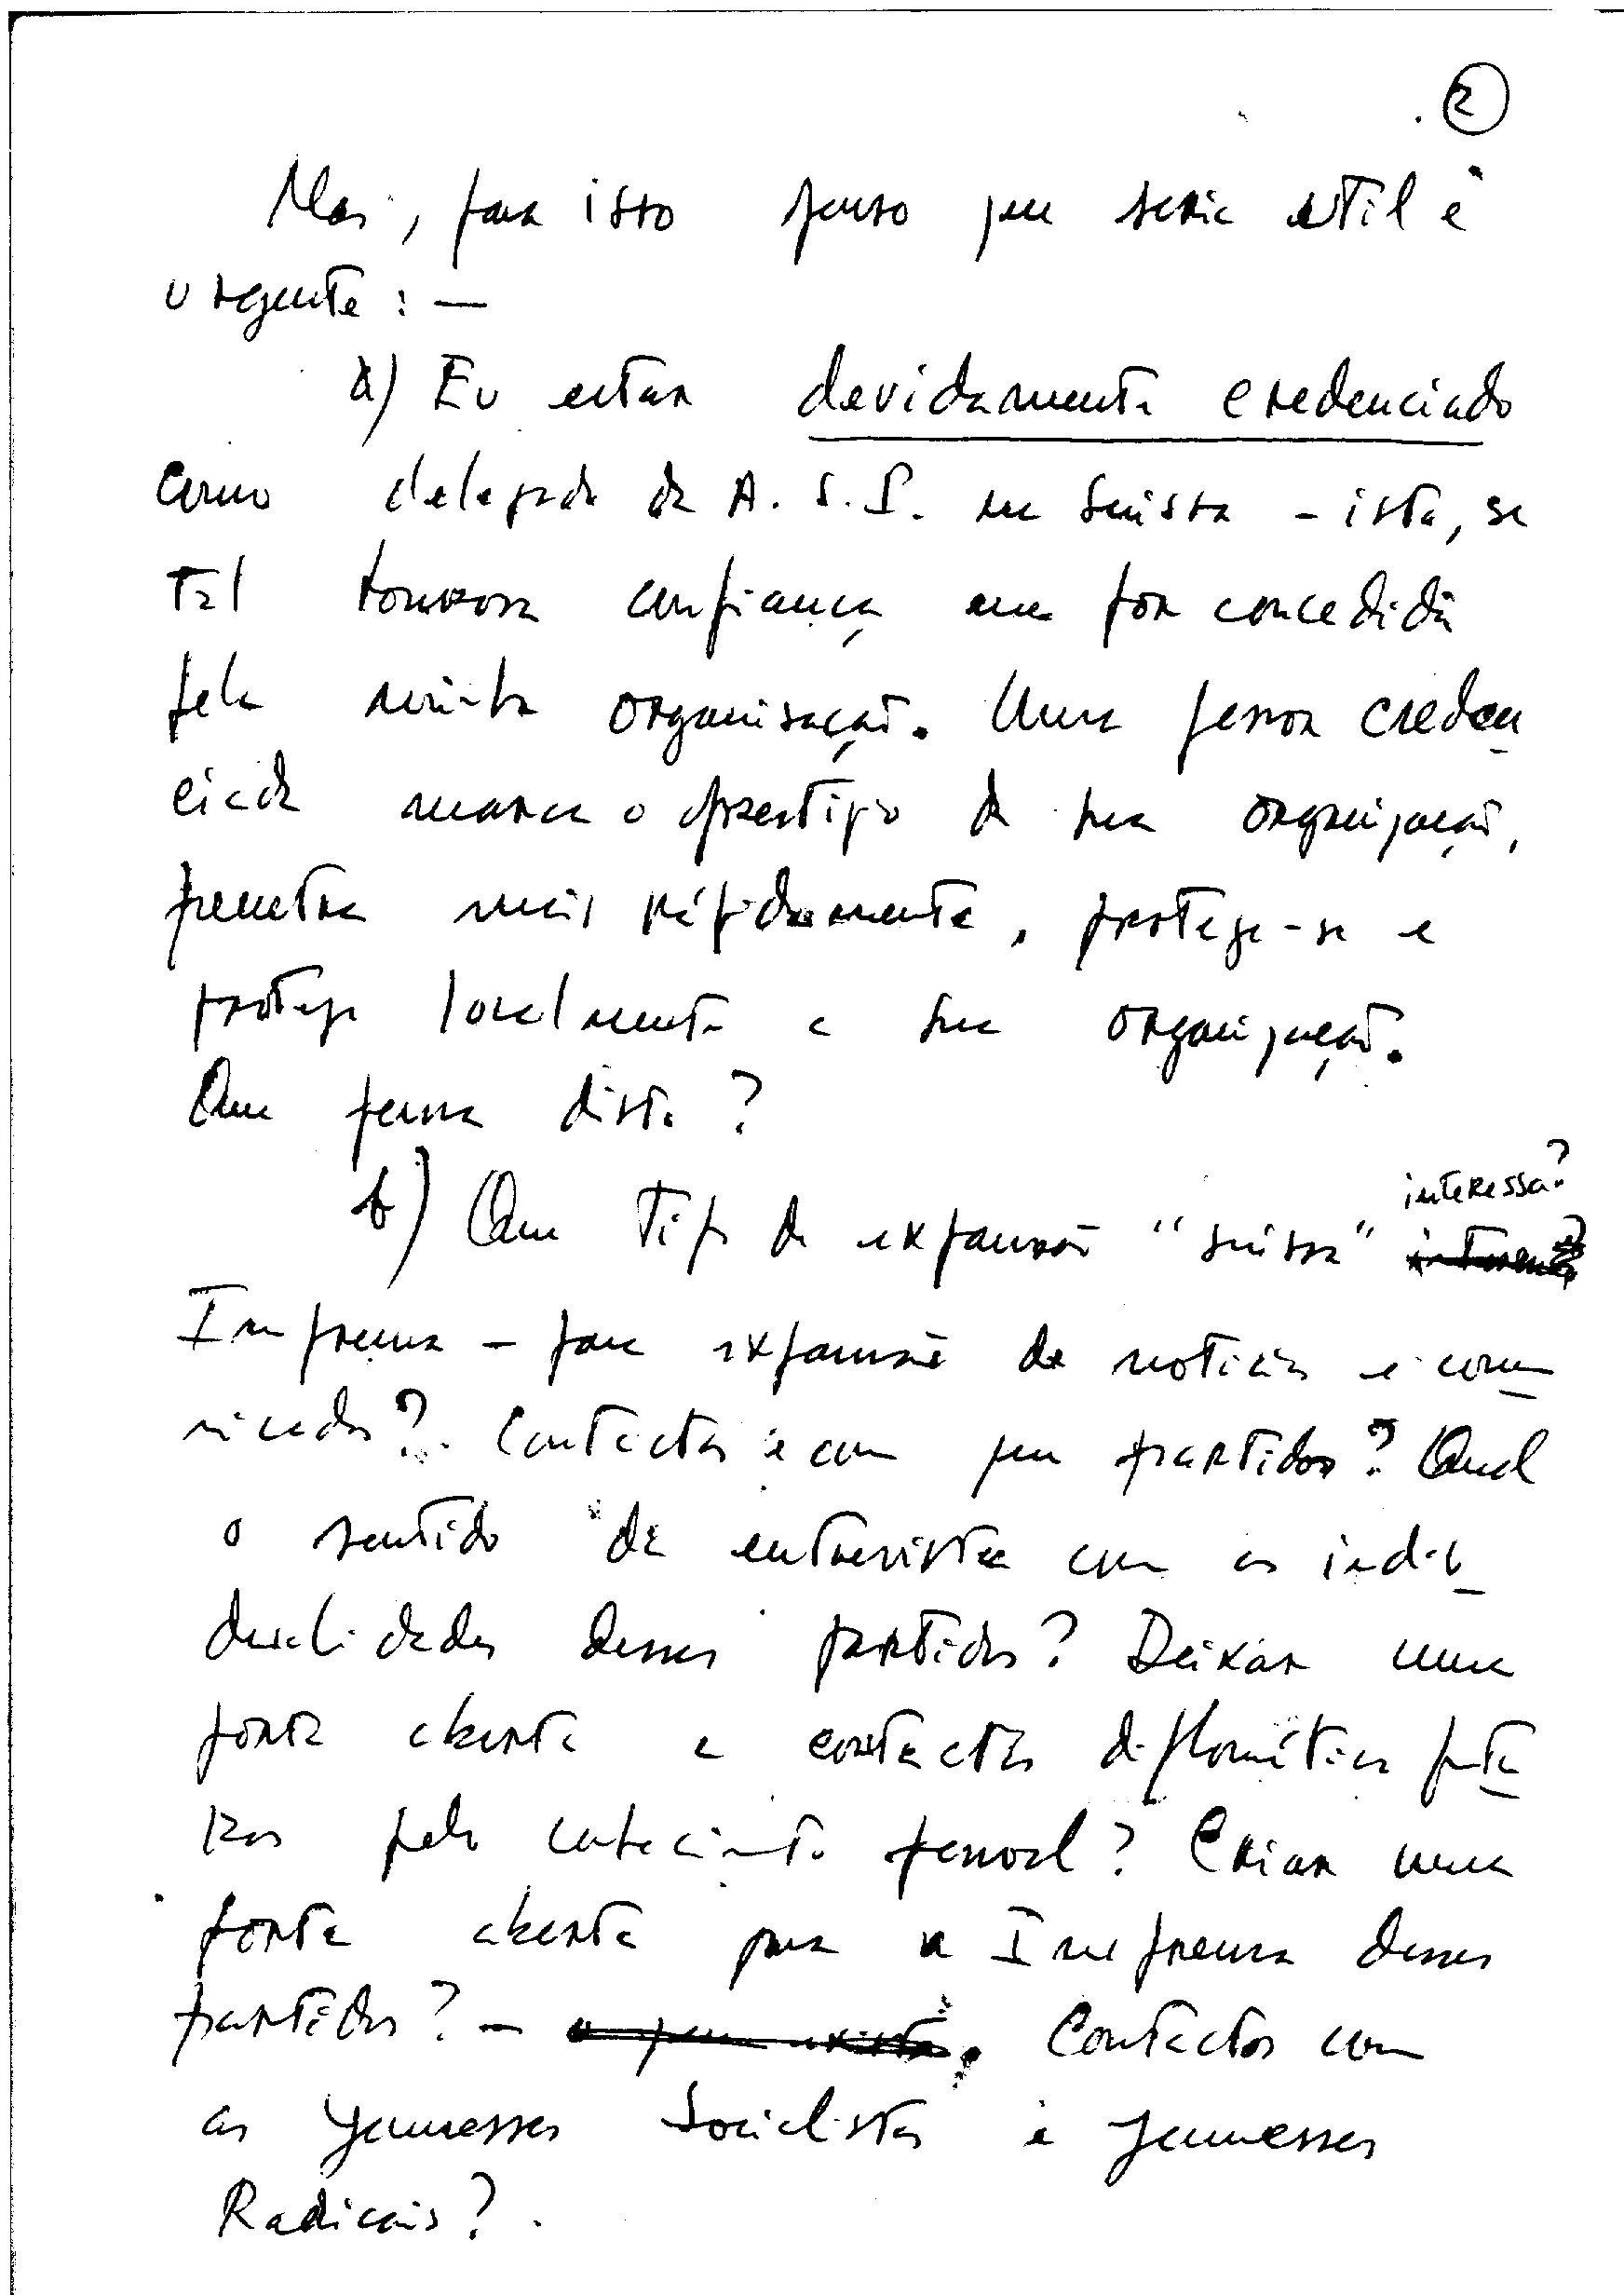 2
Mas, para isto penso que seria util e
urgente: —
a) Eu estar devidamente credenciado
como delegado da A. S. P. na Suissa - isto, se
tal honrosa confiança me for concedida
pela minha organisação. Uma pessoa creden
ciada marca o prestigio da sua organização,
penetra mais rápidamente, protege-se e
protege localmente a sua organização.
Que pensa disto?
b) Que tipo de expansão "suissa" interessa?
Imprensa - para expansão de noticias e comu
nicados? Contactos e com que partidos? Qual
o sentido da entrevista com as indivi
dualidades desses partidos? Deixar uma
porta aberta a contactos diplomáticos futu
ros pelo conhecimento pessoal? Criar uma
porta aberta para a Imprensa desses
partidos? - Contactos com
as Jeunesses Socialistas e Jeunesses
Radicais?